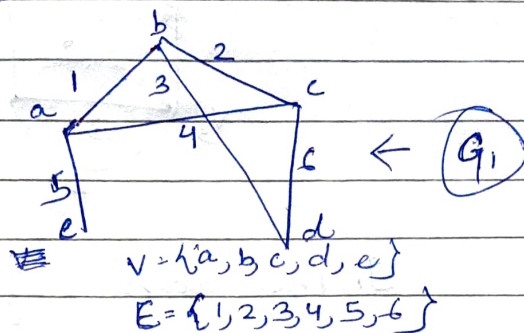 b
2
1
3
c
a
4
5
6
← G₁
e
d
V = {a, b, c, d, e}
E = {1, 2, 3, 4, 5, 6}